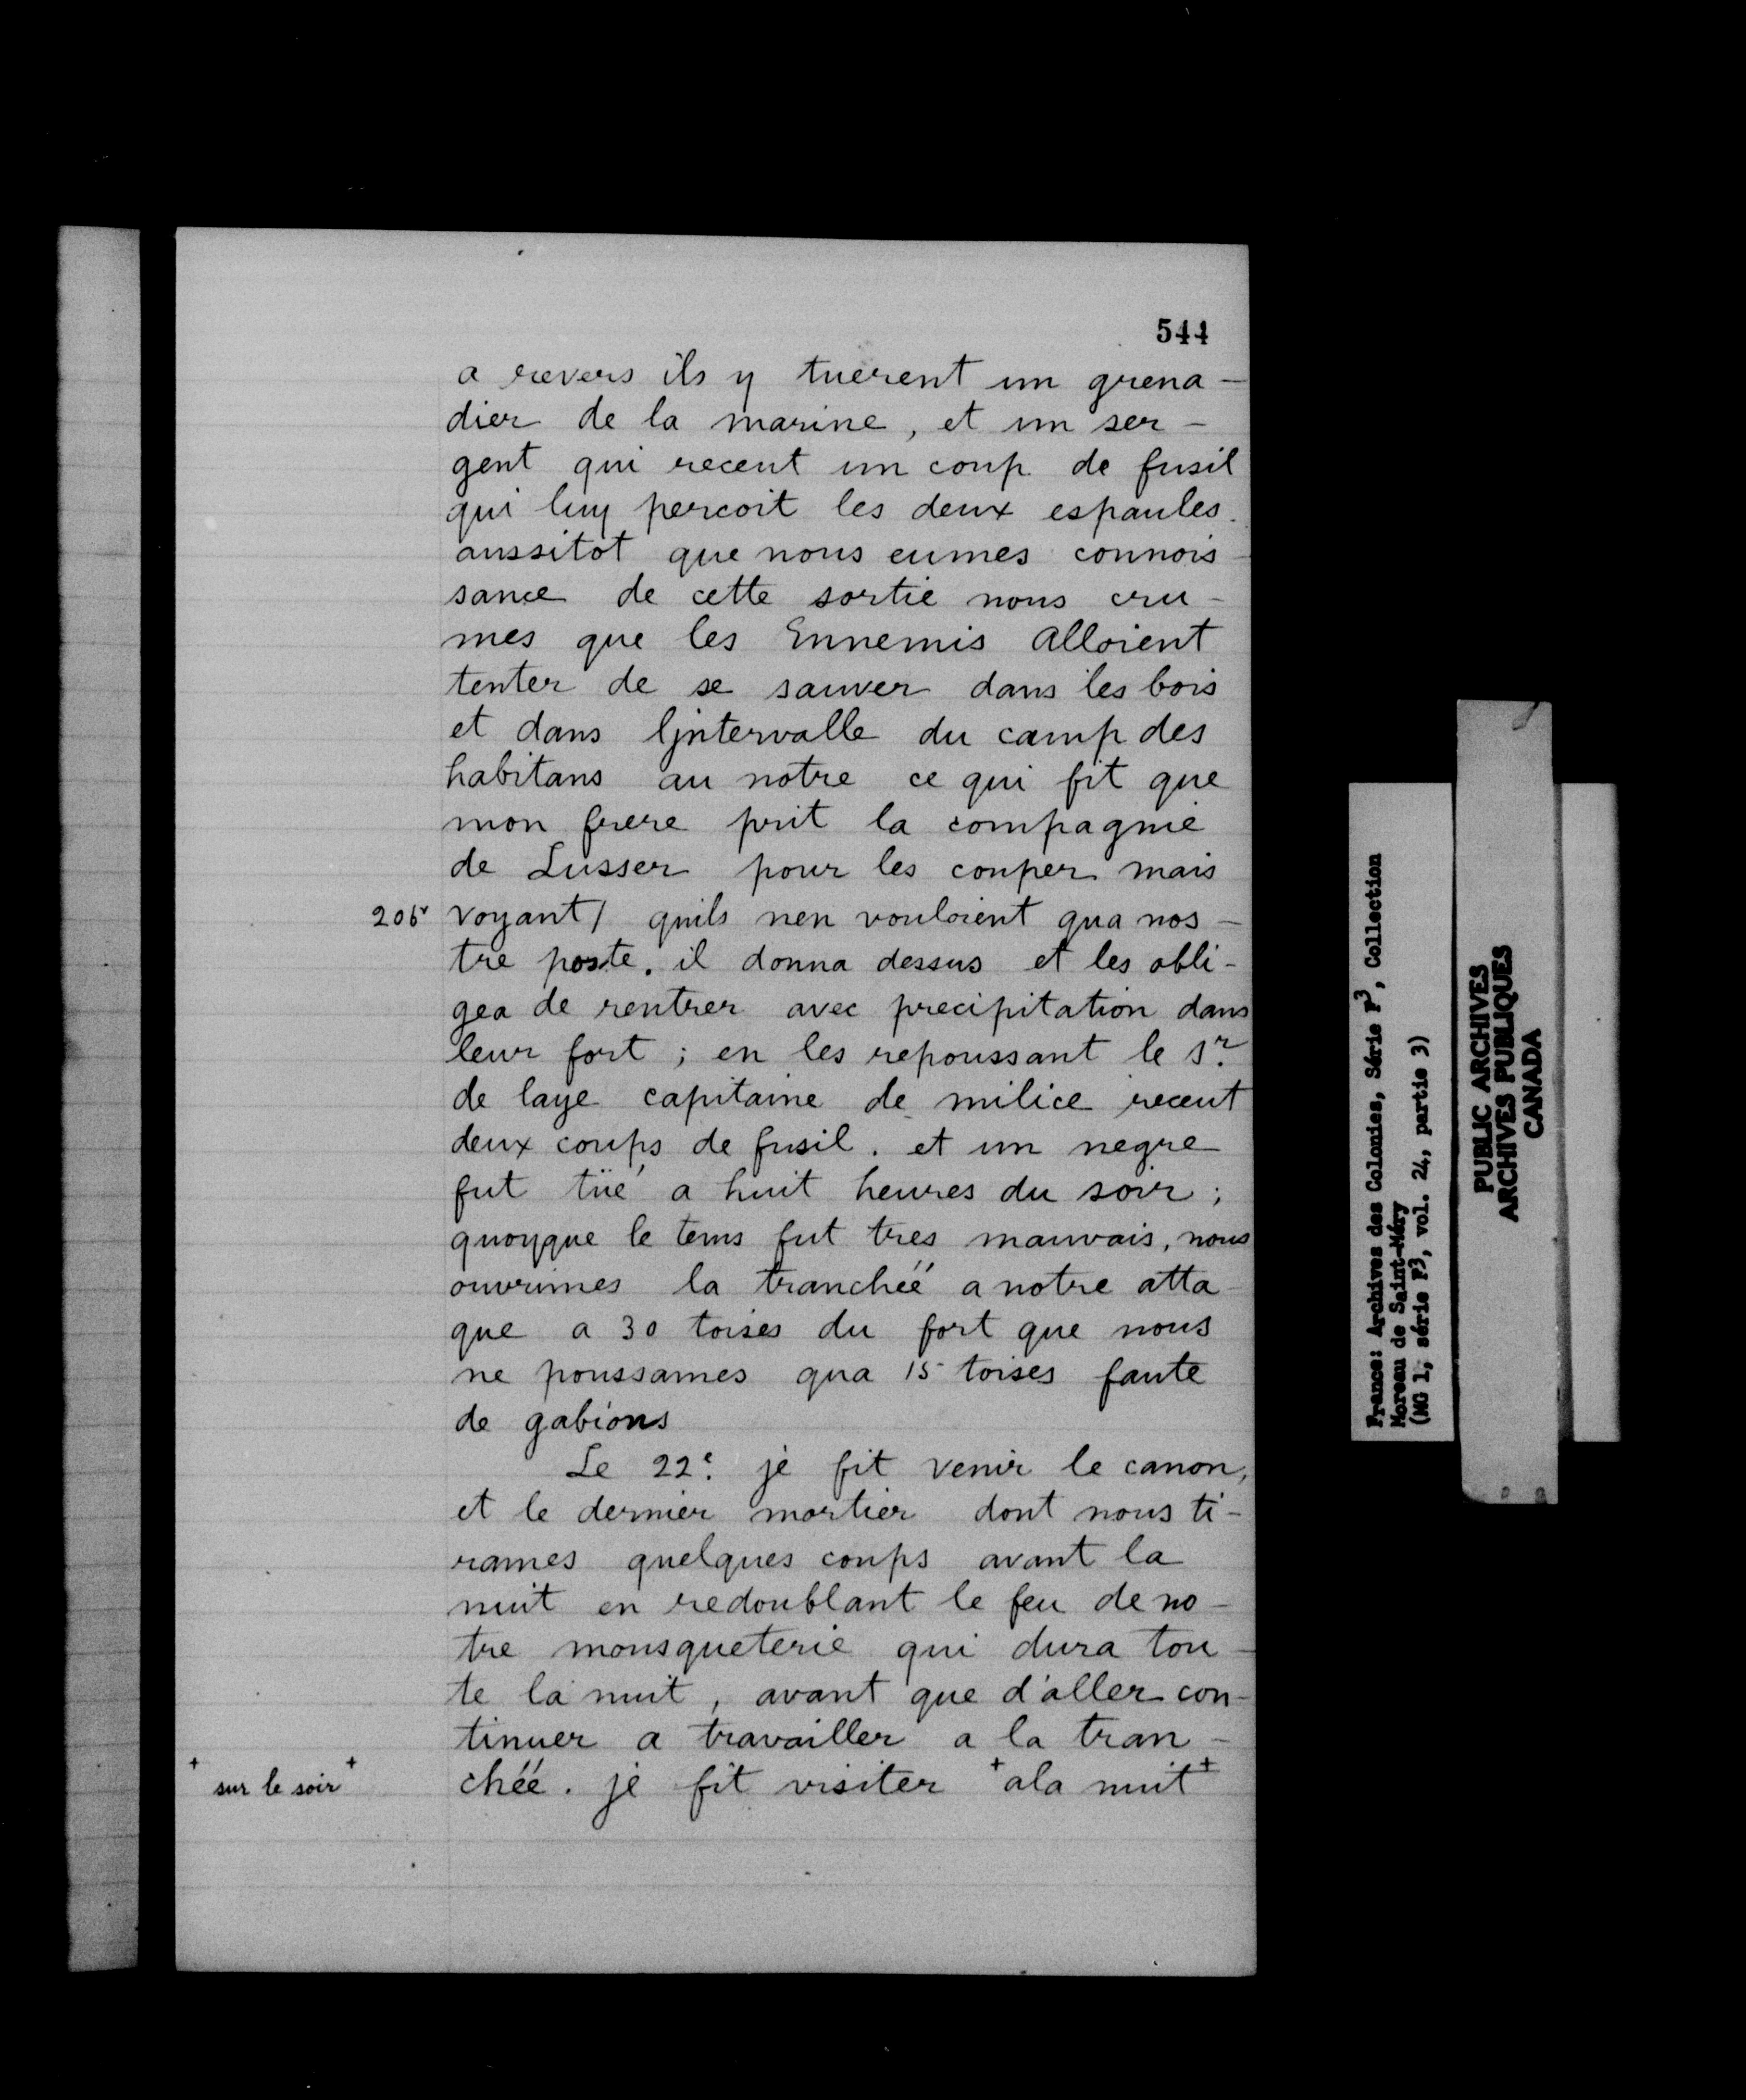 544
a revers ils y tuerent un grena-
dier de la marine, et un ser-
gent qui receut un coup de fusil
qui luy percoit les deux espaules.
aussitot que nous eumes connois
sance de cette sortie nous cru-
mes que les Ennemis alloient
tenter de se sauver dans les bois
et dans ljntervalle du camp des
habitans au notre ce qui fit que
mon frere prit la compagnie
de Lusser pour les couper mais
206v voyant/ quils nen vouloient qua nos-
tre poste. il donna dessus et les obli-
gea de rentrer avec precipitation dans
leur fort ; en les repoussant le Sr.
de laye capitaine de milice receut
deux coups de fusil. et un negre
fut tüé a huit heures du soir ;
quoyque le tems fut tres mauvais, nous
ouvrimes la tranchéé a notre atta-
que a 30 toises du fort que nous
ne poussames qua 15 toises faute
de gabions
Le 22e. je fit venir le canon,
et le dernier mortier dont nous ti-
rames quelques coups avant la
nuit en redoublant le feu de no-
tre mousqueterie qui dura tou-
te la nuit, avant que d'aller con-
tinuer a travailler a la tran-
chéé. je fit visiter + ala nuit +
+ sur le soir +
France: Archives des Colonies, Série F3, Collection
Moreau de Saint-Méry
(MG 1, série F3, vol. 24, partie 3)
PUBLIC ARCHIVES
ARCHIVES PUBLIQUES
CANADA